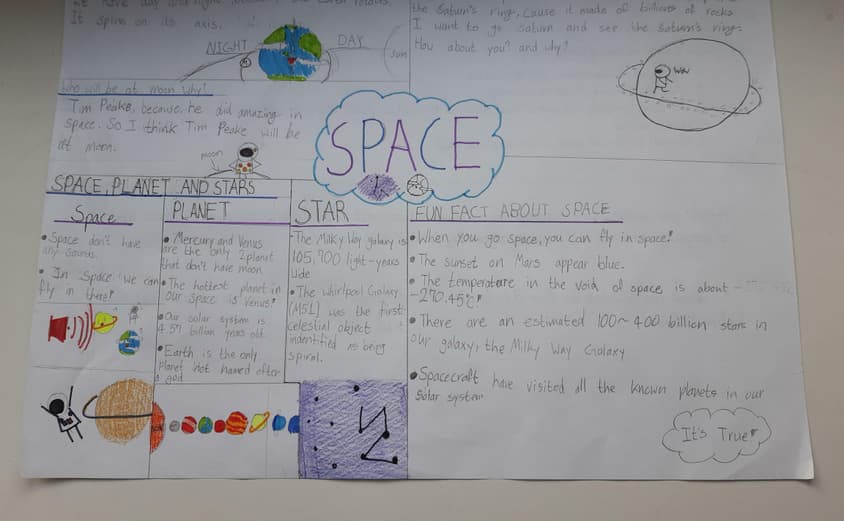 we have day and night
It spins on its axis.
NIGHT
DAY
Sun
the Saturn's rings, cause it made of billions of rocks
I want to go saturn and see the saturn's rings.
How about you? and why?
WoW
Who will be at moon why?
Tim Peake, because, he did amazing in
space. So I think Tim Peake will be
at moon.
moon
SPACE
SPACE, PLANET AND STARS
Space
• Space don't have
any sounds.
• In Space we can
fly in there!
PLANET
• Mercury and Venus
are the only 2planet
that don't have moon
• The hottest planet in
our space is Venus!
• Our solar system is
4.571 billion years old
• Earth is the only
planet not named after
a god
STAR
• The Milky Way galaxy is
105,700 light-years
wide
• The Whirlpool Galaxy
(M51) was the first
celestial object
indentified as being
spiral.
FUN FACT ABOUT SPACE
• When you go space, you can fly in space!
• The sunset on Mars appear blue.
• The temperature in the void of space is about
-270.45°C!
• There are an estimated 100~400 billion stars in
our galaxy, the Milky Way Galaxy
• Spacecraft have visited all the known planets in our
solar system
It's True!